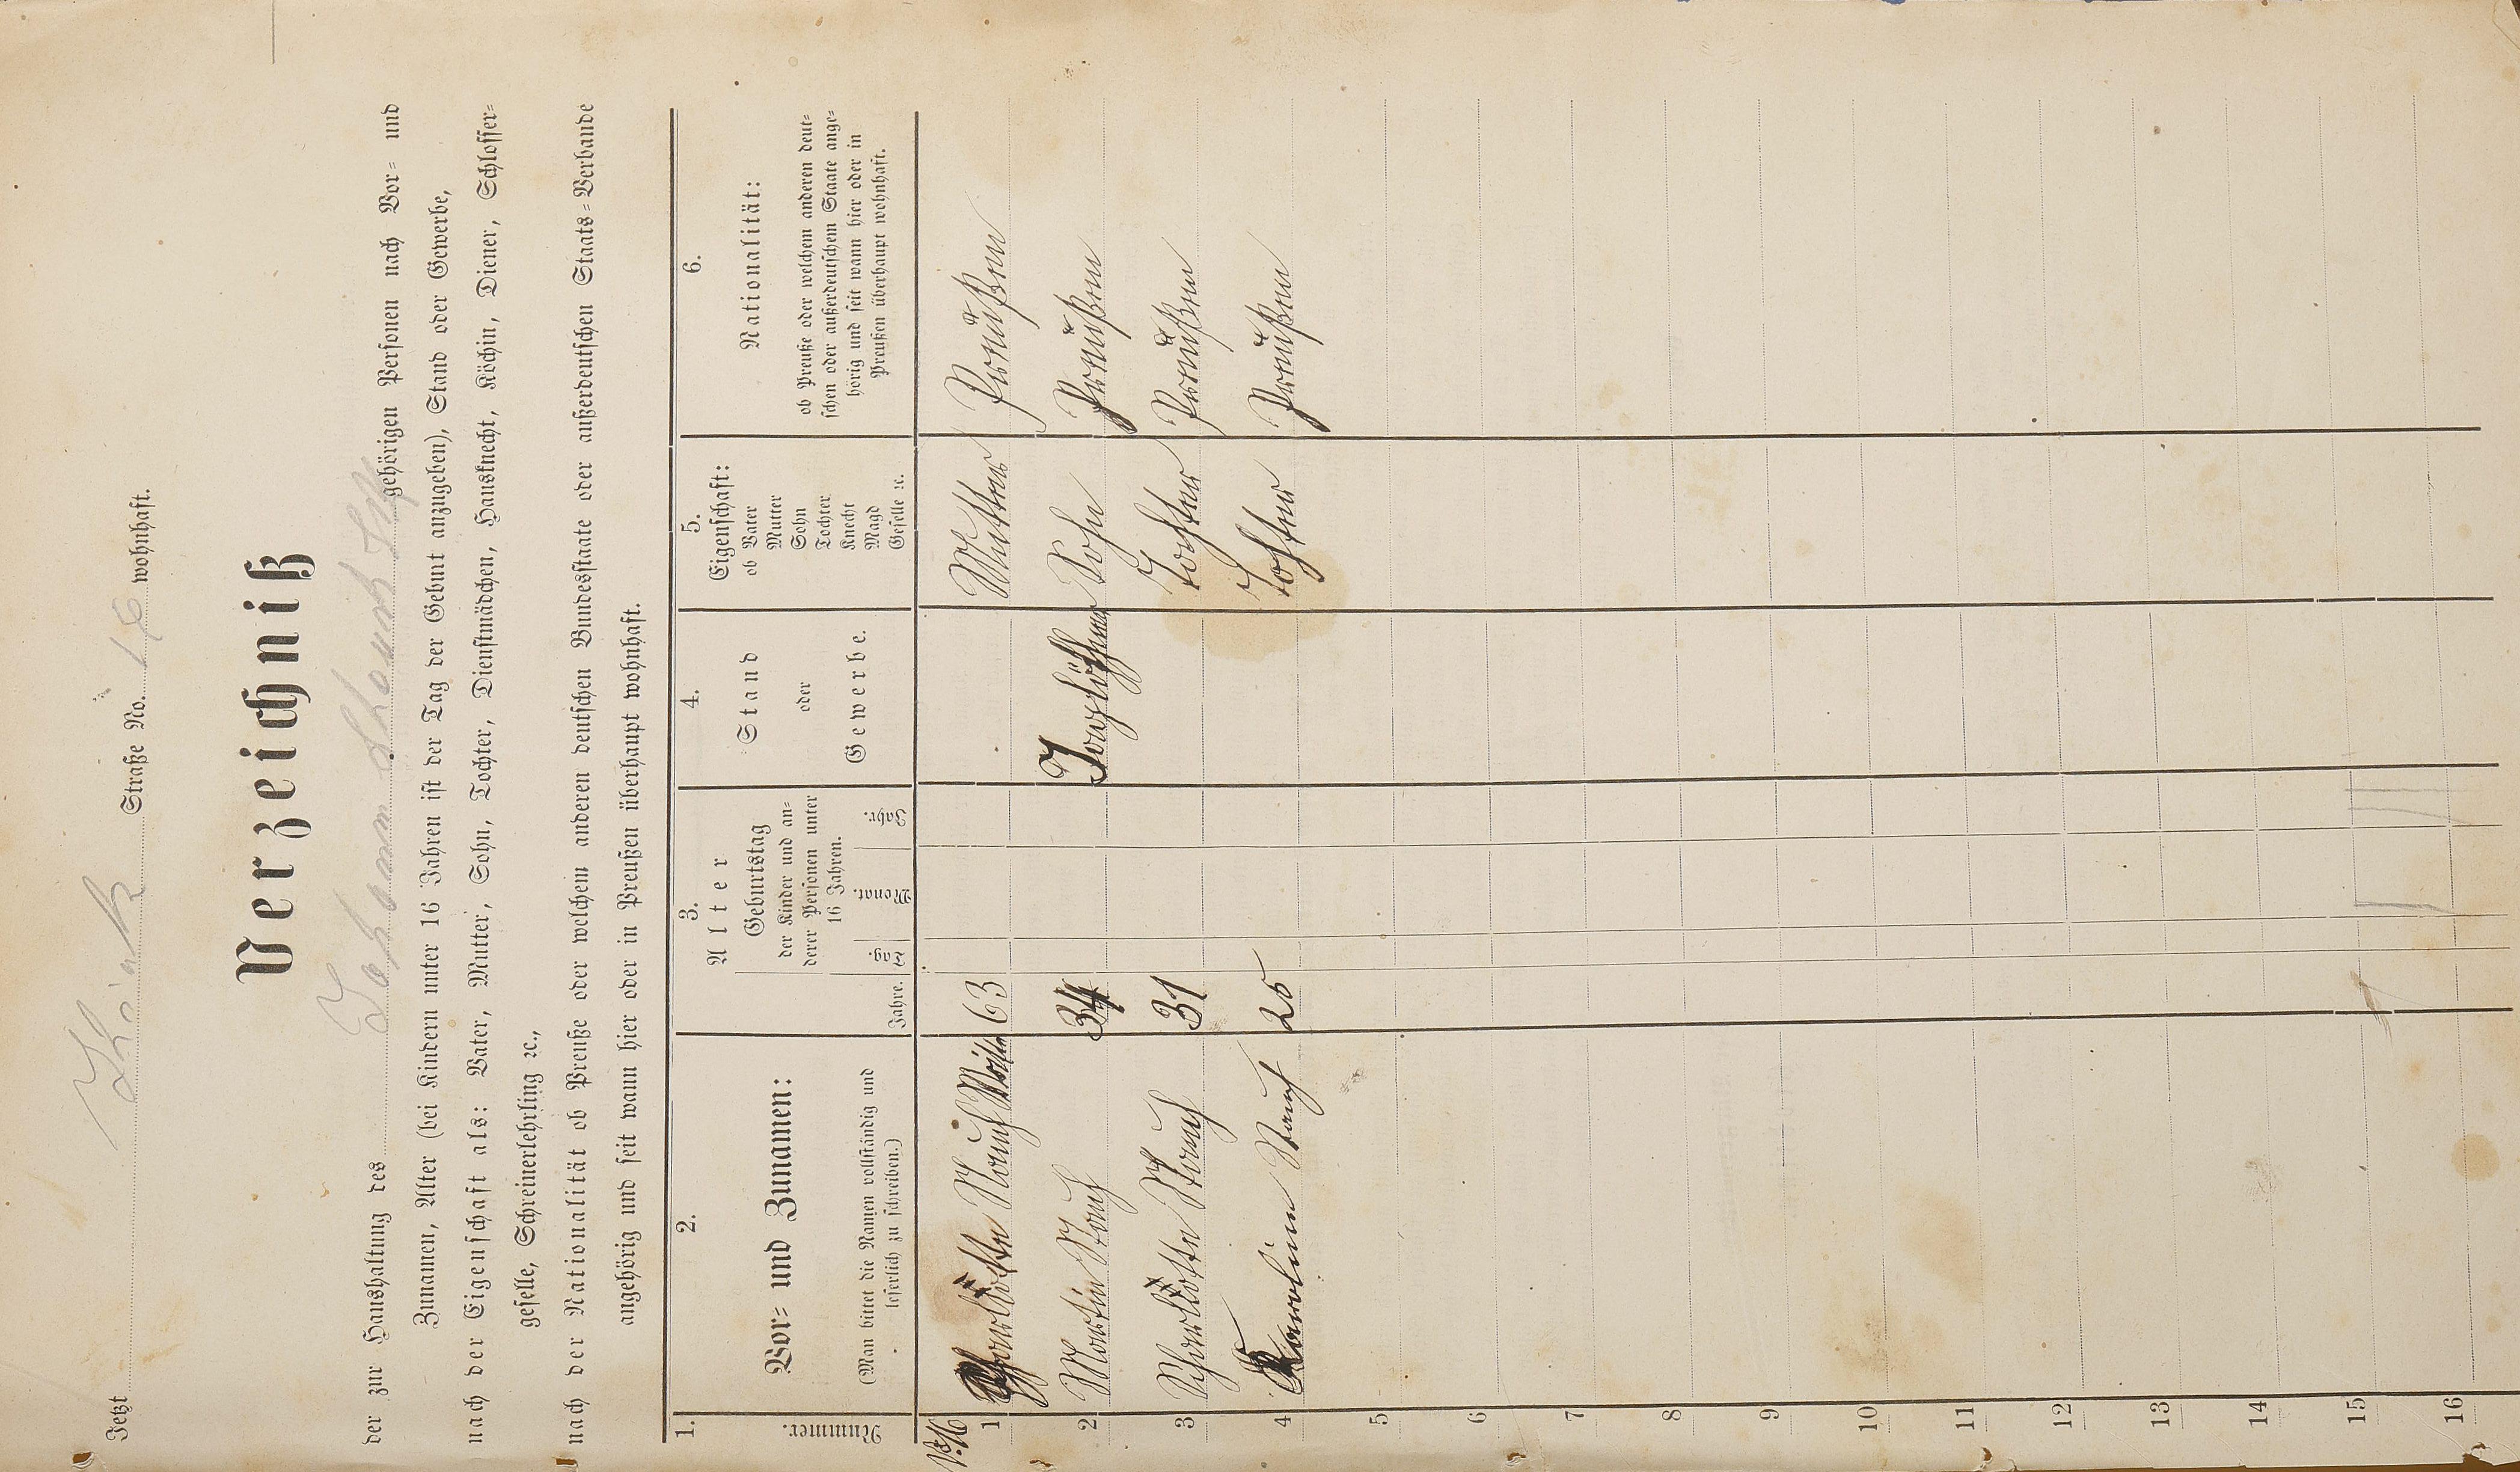 Jetzt Straße No. 16 wohnhaft.
Verzeichniß
der zur Haushaltung des Johann gehörigen Personen nach Vor= und
Zunamen, Alter (bei Kindern unter 16 Jahren ist der Tag der Geburt anzugeben), Stand oder Gewerbe,
nach der Eigenschaft als: Vater, Mutter, Sohn, Tochter, Dienstmädchen, Hausknecht, Köchin, Diener, Schlosser=
geselle, Schreinerlehrling ꝛc.,
nach der Nationalität ob Preuße oder welchem anderen deutschen Bundesstaate oder außerdeutschen Staats=Verbande
angehörig und seit wann hier oder in Preußen überhaupt wohnhaft.
1.
Nummer.
2.
Vor= und Zunamen:
(Man bittet die Namen vollständig und
leserlich zu schreiben.)
3.
Alter
Jahre.
Geburtstag
der Kinder und an=
derer Personen unter
16 Jahren.
Tag.
Monat.
Jahr.
4.
Stand
oder
Gewerbe.
5.
Eigenschaft:
ob Vater
Mutter
Sohn
Tochter
Knecht
Magd
Geselle ꝛc.
6.
Nationalität:
ob Preuße oder welchem anderen deut=
schen oder außerdeutschem Staate ange=
hörig und seit wann hier oder in
Preußen überhaupt wohnhaft.
1 Charlotte 63 Mutter Preußen
2 Martin Stauch 34 Tagelöhner Sohn Preußen
3 Scharlotte Stauch 31 Tochter Preußen
4 Karoline Stauch 25 Tochter Preußen
5
6
7
8
9
10
11
12
13
14
15
16